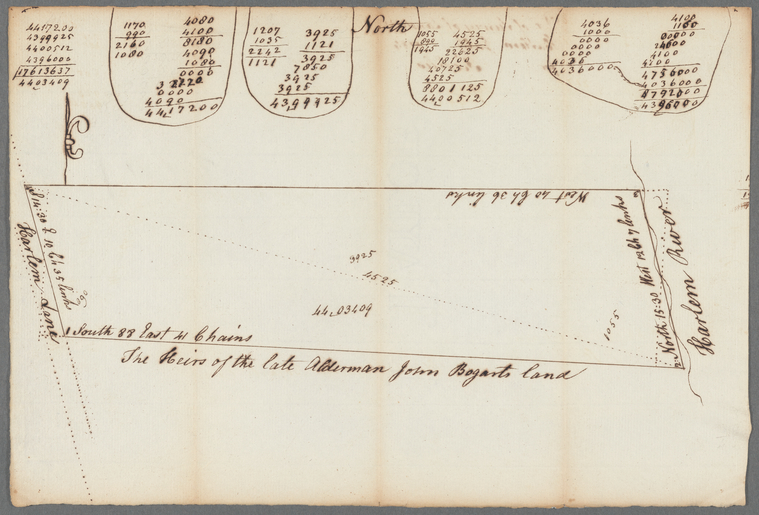 4417200
4399925
4400512
4396000
17613637
4403409
1170
990
2160
1080
4080
4100
8180
4090
1080
0000
0000
4090
4417200
1207
1035
2242
1121
3925
1121
3925
7850
3925
3925
4399925
North
1055
890
1945
4525
1945
22625
18100
40725
4525
8801125
4400512
4036
1000
0000
0000
0000
4036
4036000
4100
1160
4100
4100
4756000
4036000
8792000
4396000
West 40 Ch 36 links
Harlem Lane
3925
4525
44,03409
1055
North 15:30 West 12 Ch 7 links
Harlem River
1 South 88 East 41 Chains
2
The Heirs of the late Alderman John Bogarts land